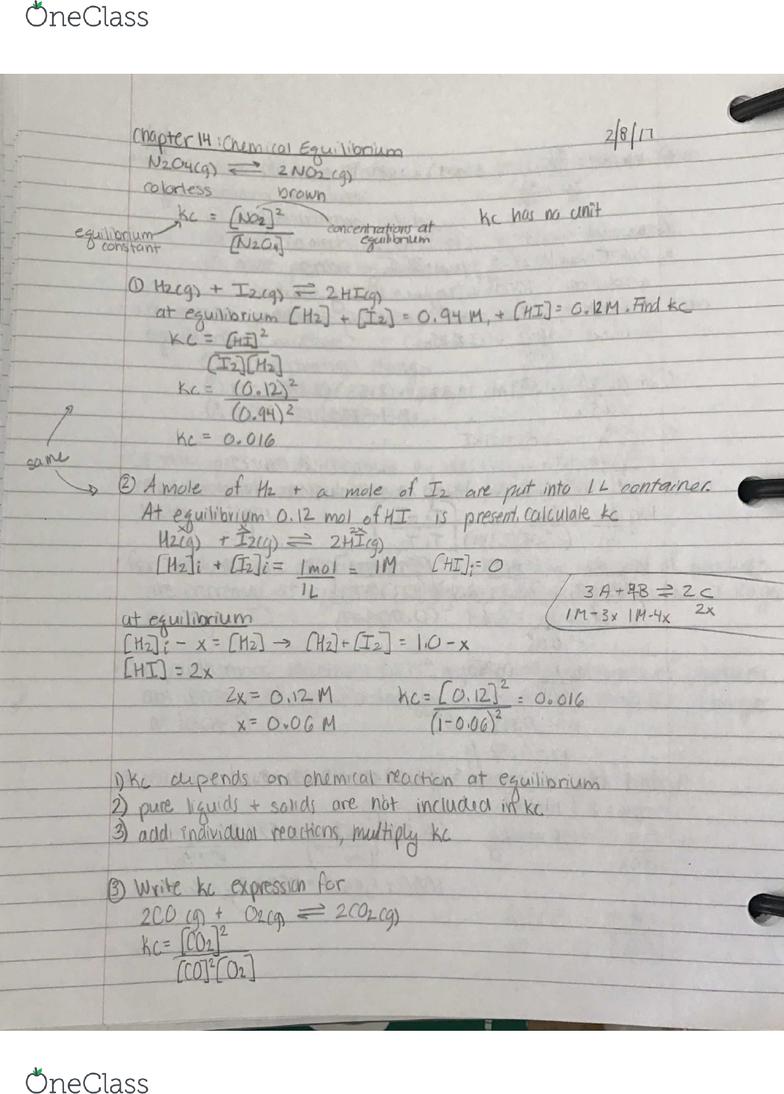 OneClass
Chapter 14: Chemical Equilibrium 2/8/17
N2O4(g) ⇌ 2NO2(g)
colorless brown
Kc = [NO2]² / [N2O4]
equilibrium constant
concentrations at equilibrium
Kc has no unit
① H2(g) + I2(g) ⇌ 2HI(g)
at equilibrium [H2] + [I2] = 0.94 M, + [HI] = 0.12M. Find Kc
Kc = [HI]²
[I2][H2]
Kc = (0.12)²
(0.94)²
Kc = 0.016
same
② A mole of H2 + a mole of I2 are put into 1L container.
At equilibrium 0.12 mol of HI is present. Calculate Kc
x x 2x
H2(g) + I2(g) ⇌ 2HI(g)
[H2]i + [I2]i = 1mol = 1M [HI]i = 0
1L
3A + 4B ⇌ 2C
1M-3x 1M-4x 2x
at equilibrium
[H2]i - x = [H2] → [H2] + [I2] = 1.0 - x
[HI] = 2x
2x = 0.12 M Kc = [0.12]² = 0.016
x = 0.06 M (1-0.06)²
1) Kc depends on chemical reaction at equilibrium
2) pure liquids + solids are not included in Kc
3) add individual reactions, multiply Kc
③ Write Kc expression for
2CO(g) + O2(g) ⇌ 2CO2(g)
Kc = [CO2]²
[CO]²[O2]
OneClass